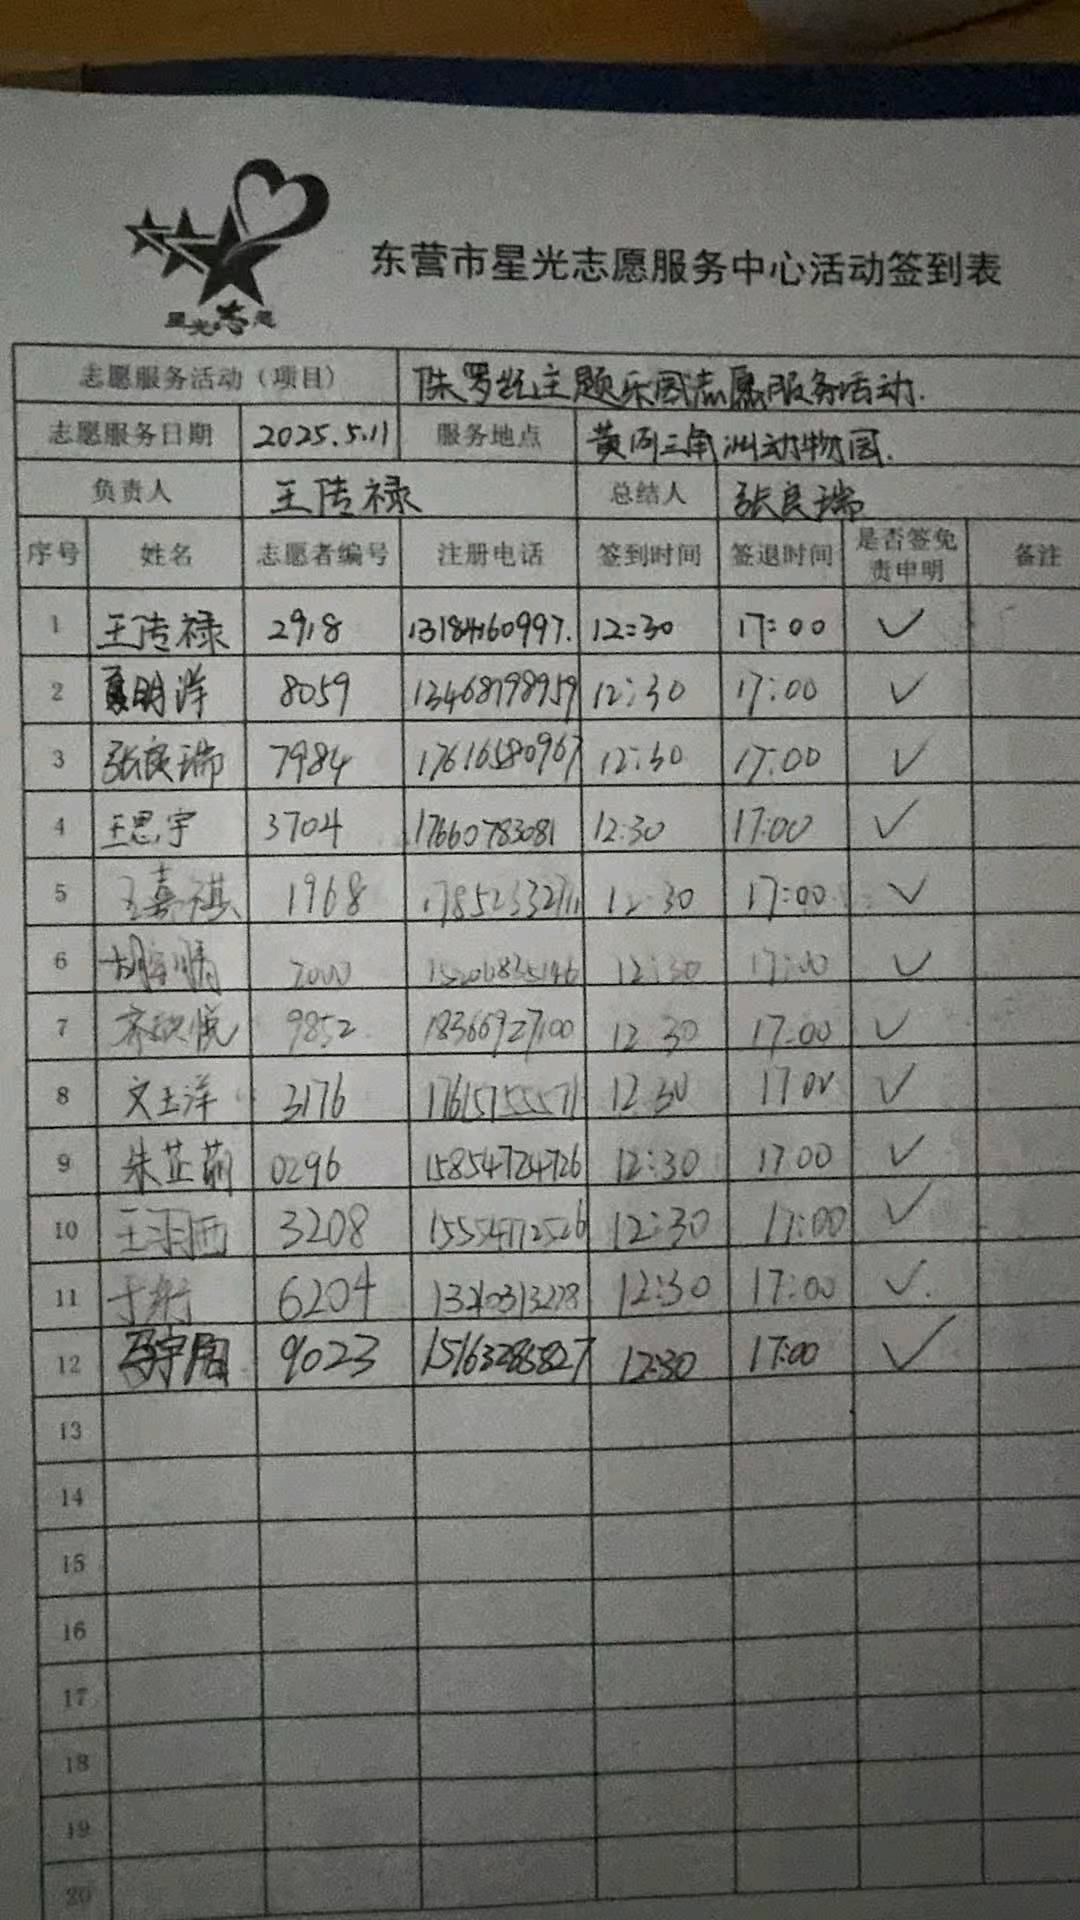 星光志愿
东营市星光志愿服务中心活动签到表
志愿服务活动（项目） 侏罗纪主题乐园志愿服务活动.
志愿服务日期 2025.5.11 服务地点 黄河三角洲动物园.
负责人 王传禄 总结人 张良瑞
序号 姓名 志愿者编号 注册电话 签到时间 签退时间 是否签免责申明 备注
1 王传禄 2918 13184160997. 12:30 17:00 ✓
2 夏明洋 8059 13468198959 12:30 17:00 ✓
3 张良瑞 7984 17616580967 12:30 17:00 ✓
4 王思宇 3704 17660783081 12:30 17:00 ✓
5 王嘉祺 1968 12:30 17:00 ✓
6 12:30 17:00 ✓
7 9852 18366927100 12:30 17:00 ✓
8 文玉洋 3176 17615755571 12:30 17:00 ✓
9 朱芷萌 0296 15854724726 12:30 17:00 ✓
10 王羽西 3208 15554772526 12:30 17:00 ✓
11 6204 12:30 17:00 ✓.
12 9023 15163286827 12:30 17:00 ✓
13
14
15
16
17
18
19
20